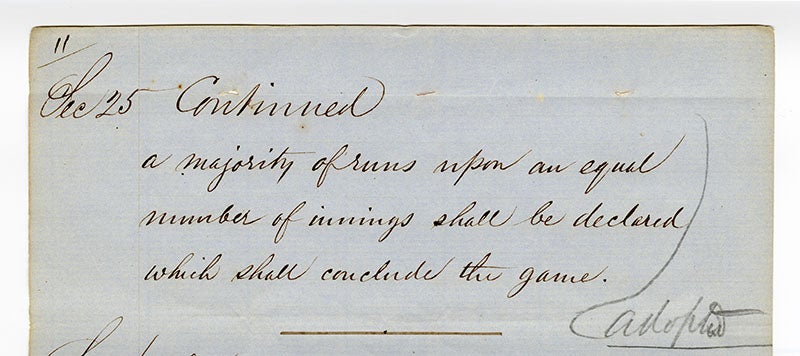 11
Sec 25 Continued
a majority of runs upon an equal
number of innings shall be declared
which shall conclude the game.
adopted